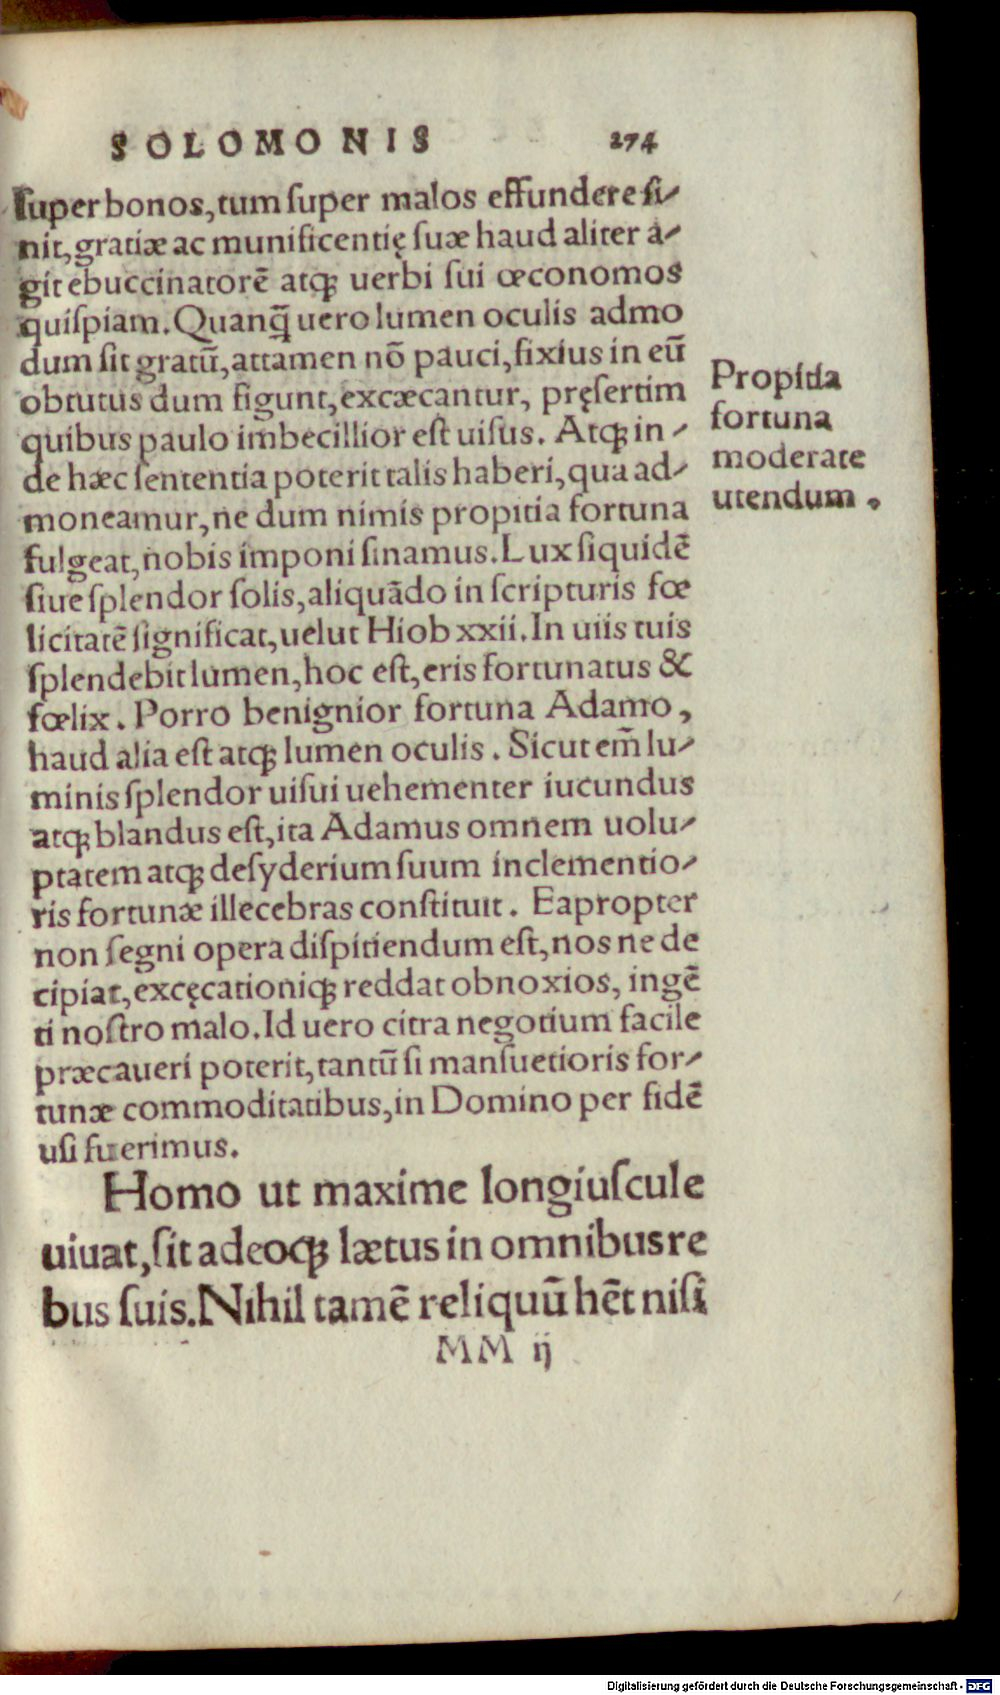 SOLOMONIS 274
ſuper bonos, tum ſuper malos effundere ſi⸗
nit, gratiæ ac munificentię ſuæ haud aliter a⸗
git ebuccinatorē atq; uerbi ſui œconomos
quiſpiam. Quanq̃ uero lumen oculis admo
dum ſit gratū, attamen nō pauci, fixius in eū
obtutus dum figunt, excæcantur, pręſertim
quibus paulo imbecillior eſt uiſus. Atq; in⸗
de hæc ſententia poterit talis haberi, qua ad⸗
moneamur, ne dum nimis propitia fortuna
fulgeat, nobis imponi ſinamus. Lux ſiquidē
ſiue ſplendor ſolis, aliquādo in ſcripturis fœ
licitatē ſignificat, uelut Hiob xxii. In uiis tuis
ſplendebit lumen, hoc eſt, eris fortunatus &
fœlix. Porro benignior fortuna Adamo,
haud alia eſt atq; lumen oculis. Sicut em̃ lu⸗
minis ſplendor uiſui uehementer iucundus
atq; blandus eſt, ita Adamus omnem uolu⸗
ptatem atq; deſyderium ſuum inclementio⸗
ris fortunæ illecebras conſtituit. Eapropter
non ſegni opera diſpitiendum eſt, nos ne de
cipiat, excęcationiq; reddat obnoxios, ingē
ti noſtro malo. Id uero citra negotium facile
præcaueri poterit, tantū ſi manſuetioris for⸗
tunæ commoditatibus, in Domino per fidē
uſi fuerimus.
Homo ut maxime longiuſcule
uiuat, ſit adeoq; lætus in omnibus re
bus ſuis. Nihil tamē reliquū hēt niſi
MM ij
Propitia
fortuna
moderate
utendum.
Digitalisierung gefördert durch die Deutsche Forschungsgemeinschaft - DFG